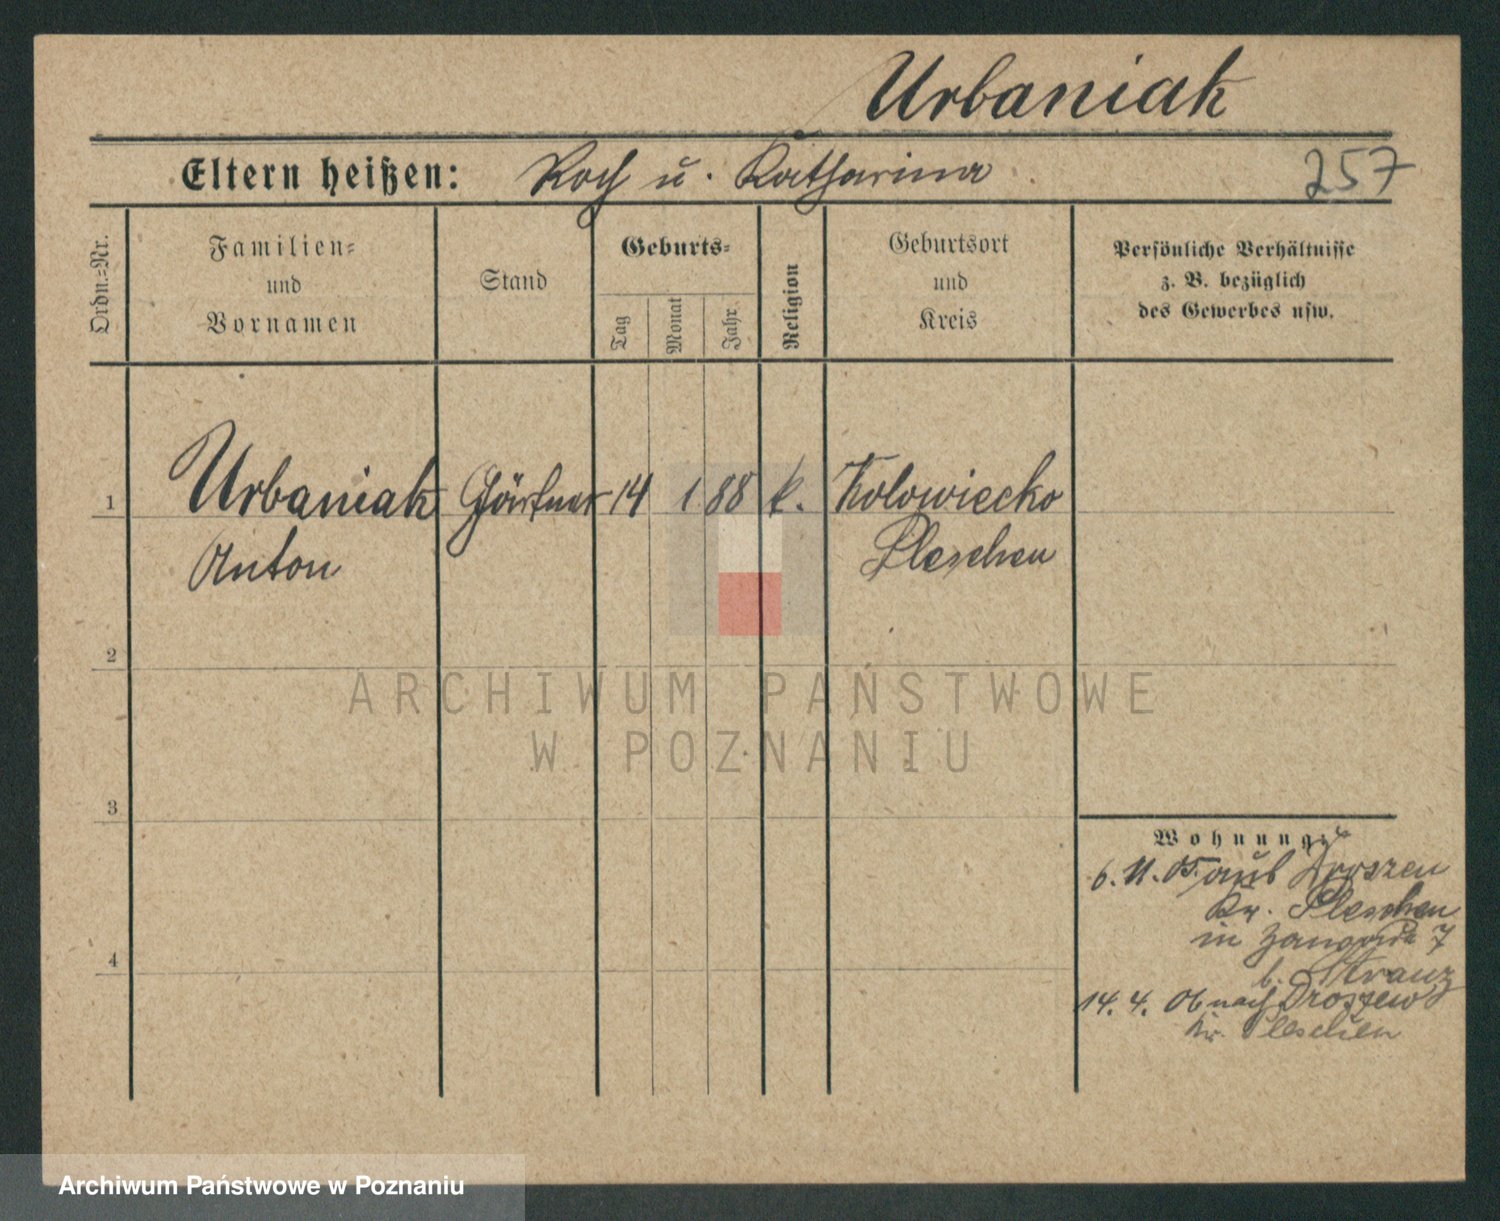 Urbaniak
Eltern heißen: Roch u. Katharina 257
Ordn.=Nr.
Familien=
und
Vornamen
Stand
Geburts=
Tag
Monat
Jahr
Religion
Geburtsort
und
Kreis
Persönliche Verhältnisse
z. B. bezüglich
des Gewerbes usw.
1 Urbaniak Gärtner 14 1 88 k. Kolowiecko
Anton Pleschen
2
ARCHIWUM PAŃSTWOWE
W POZNANIU
3
Wohnung
6. 11. 05. aus Droszew
Kr. Pleschen
in 7
b.
4
14. 4. 06 nach Droszew
Kr. Pleschen
Archiwum Państwowe w Poznaniu